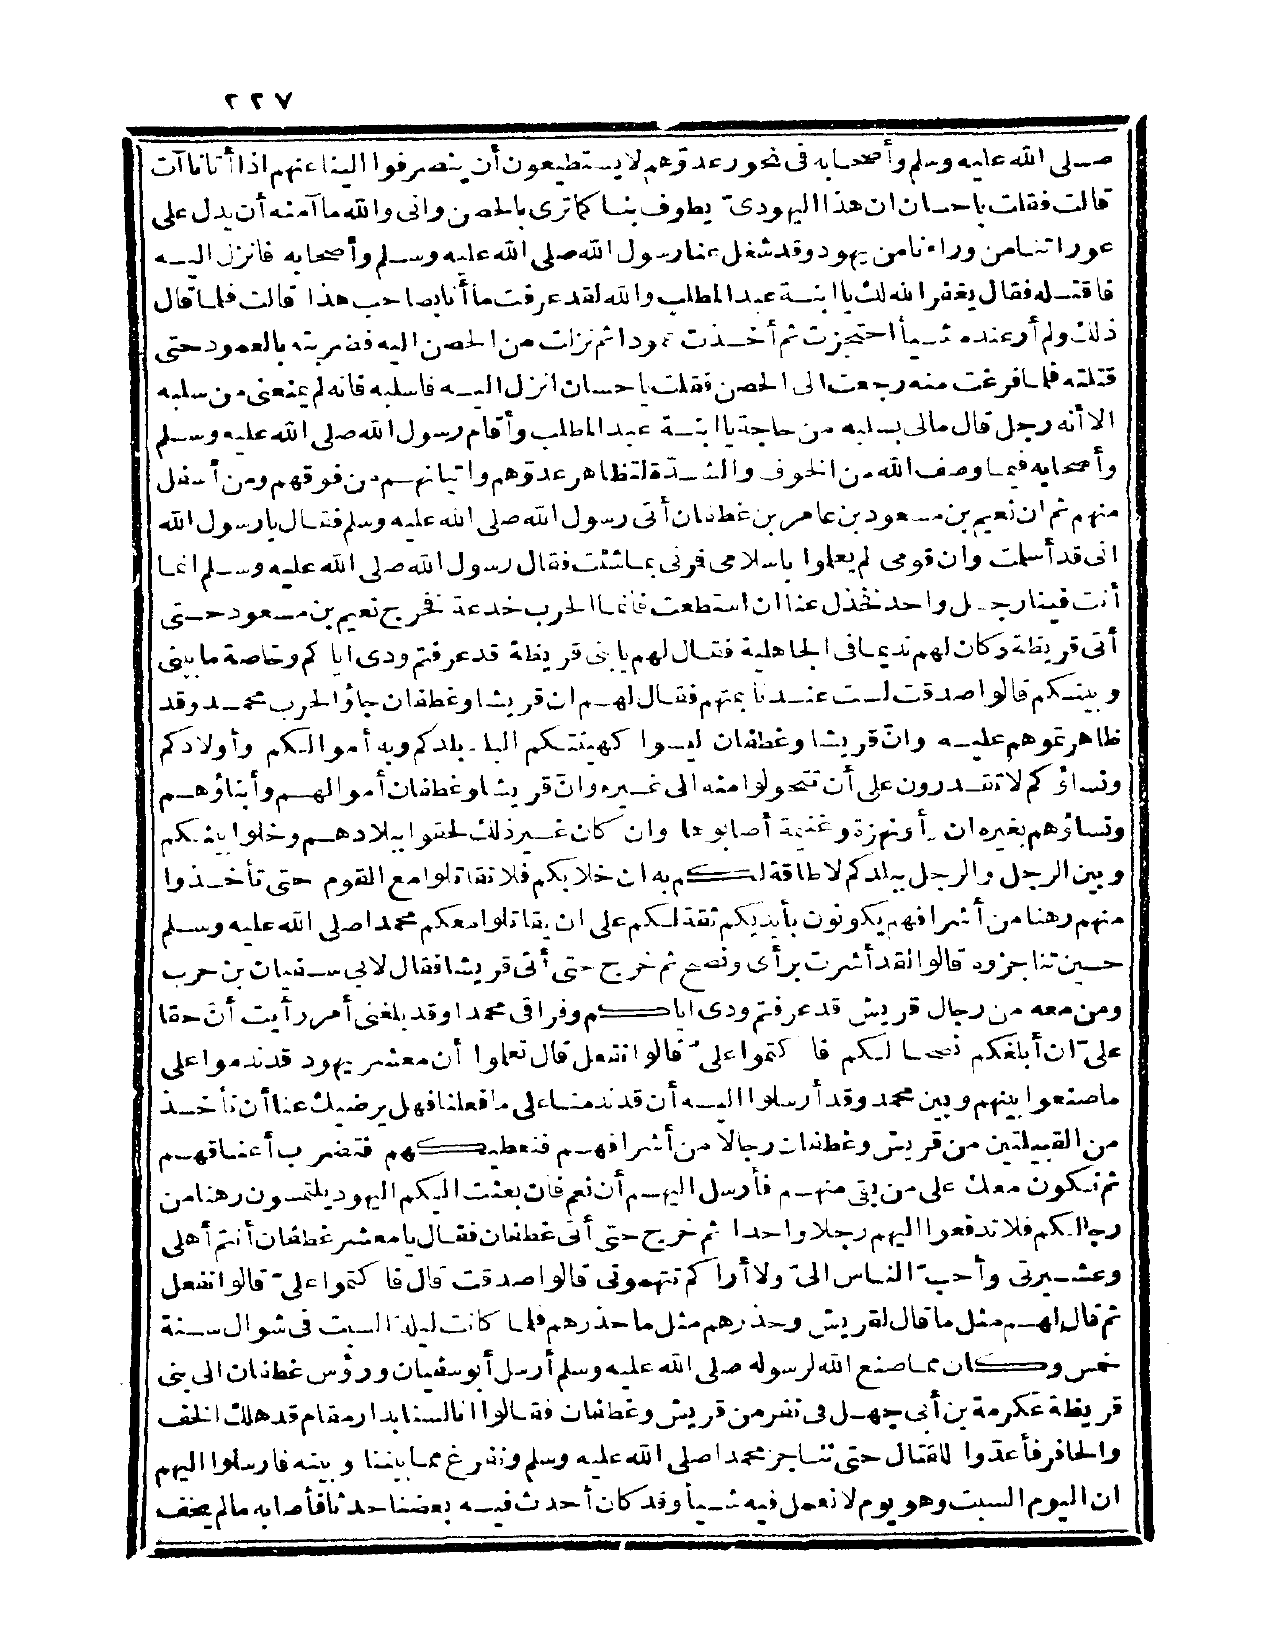 ٢٢٧
صلى الله عليه وسلم وأصحابه فى نحور عدوّهم لا يستطيعون أن ينصرفوا الينا عنهم اذا أتانا آت
قالت فقلت يا حسان ان هذا اليهودىّ يطوف بنا كما ترى بالحصن وانى والله ما آمنه أن يدل على
عوراتنا من وراءنا من يهود وقد شغل عنا رسول الله صلى الله عليه وسلم وأصحابه فانزل اليه
فاقتله فقال يغفر الله لك يا ابنة عبد المطلب والله لقد عرفت ما أنا بصاحب هذا قالت فلما قال
ذلك ولم أر عنده شيأ احتجزت ثم أخذت عمودا ثم نزلت من الحصن اليه فضربته بالعمود حتى
قتلته فلما فرغت منه رجعت الى الحصن فقلت يا حسان انزل اليه فاسلبه فانه لم يمنعنى من سلبه
الا أنه رجل قال مالى بسلبه من حاجة يا ابنة عبد المطلب وأقام رسول الله صلى الله عليه وسلم
وأصحابه فيما وصف الله من الخوف والشدة لتظاهر عدوّهم واتيانهم من فوقهم ومن أسفل
منهم ثم ان نعيم بن مسعود بن عامر بن غطفان أتى رسول الله صلى الله عليه وسلم فقال يا رسول الله
انى قد أسلمت وان قومى لم يعلوا باسلامى فرنى بما شئت فقال رسول الله صلى الله عليه وسلم انما
أنت فينا رجل واحد نخذل عنا ان استطعت فانما الحرب خدعة فخرج نعيم بن مسعود حتى
أتى قريظة وكان لهم نديما فى الجاهلية فقال لهم يا بنى قريظة قد عرفتم ودى اياكم وخاصة ما بينى
وبينكم قالوا صدقت لست عندنا بمتهم فقال لهم ان قريشا وغطفان جاؤا لحرب محمد وقد
ظاهرتموهم عليه وانّ قريشا وغطفان ليسوا كهيئتكم البلد بلدكم وبه أموالكم وأولادكم
ونساؤكم لا تقدرون على أن تتحولوا منه الى غيره وانّ قريشا وغطفان أموالهم وأبناؤهم
ونساؤهم بغيره ان رأوا نهزة وغنيمة أصابوها وان كان غير ذلك لحقوا ببلادهم وخلوا بينكم
وبين الرجل والرجل ببلدكم لا طاقة لكم به ان خلا بكم فلا تقاتلوا مع القوم حتى تأخذوا
منهم رهنا من أشرافهم يكونون بأيديكم ثقة لكم على ان يقاتلوا معكم محمدا صلى الله عليه وسلم
حين تناجزوه قالوا لقد أشرت برأى ونصح ثم خرج حتى أتى قريشا فقال لابى سفيان بن حرب
ومن معه من رجال قريش قد عرفتم ودى اياكم وفراقى محمدا وقد بلغنى أمر رأيت أنّ حقا
علىّ ان أبلغكم نصحا لكم فاكتموا علىّ قالوا نفعل قال تعلوا أن معشر يهود قد ندموا على
ما صنعوا بينهم وبين محمد وقد أرسلوا اليه أن قد ندمنا على ما فعلنا فهل يرضيك عنا أن نأخذ
من القبيلتين من قريش وغطفان رجالا من أشرافهم فنعطيكهم فتضرب أعناقهم
ثم نكون معك على من بقى منهم فأرسل اليهم أن نعم فان بعثت اليكم اليهود يلتمسون رهنا من
رجالكم فلا تدفعوا اليهم رجلا واحدا ثم خرج حتى أتى غطفان فقال يا معشر غطفان أنتم أهلى
وعشيرتى وأحبّ الناس الىّ ولا أراكم تتهمونى قالوا صدقت قال فاكتموا علىّ قالوا نفعل
ثم قال لهم مثل ما قال لقريش وحذرهم مثل ما حذرهم فلما كانت ليلة السبت فى شوال سنة
خمس وكان مما صنع الله لرسوله صلى الله عليه وسلم أرسل أبو سفيان ورؤس غطفان الى بنى
قريظة عكرمة بن أبى جهل فى نفر من قريش وغطفان فقالوا انا لسنا بدار مقام قد هلك الخف
والحافر فأعدّوا للقتال حتى نناجز محمدا صلى الله عليه وسلم ونفرغ مما بيننا وبينه فارسلوا اليهم
ان اليوم السبت وهو يوم لا نعمل فيه شيأ وقد كان أحدث فيه بعضنا حدثا فأصابه ما لم يخف